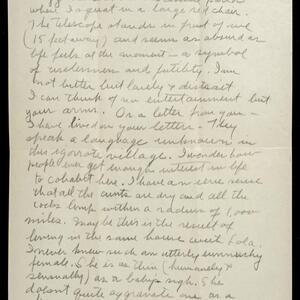 when I squat in a large red chair.
The telescope stands in front of me
(15 feet away) and seems as absurd as
life feels at the moment — a symbol
of uselessness and futility. I am
not bitter but lonely & distrait
I can think of no entertainment but
your arms. Or a letter from you —
I have lived on your letters — They
speak a language unknown in
this igorrote village. I wonder how
people ever get enough interest in life
to cohabit here. I have an eerie sense
that all the cunts are dry and all the
cocks limp within a radius of 1,000
miles. Maybe this is the result of
living in the same house with Lola.
I never knew such an utterly unmushy
female. She is as thin (humanely &
sensually) as a baby's nighty. She
doesn't quite aggravate me, as a